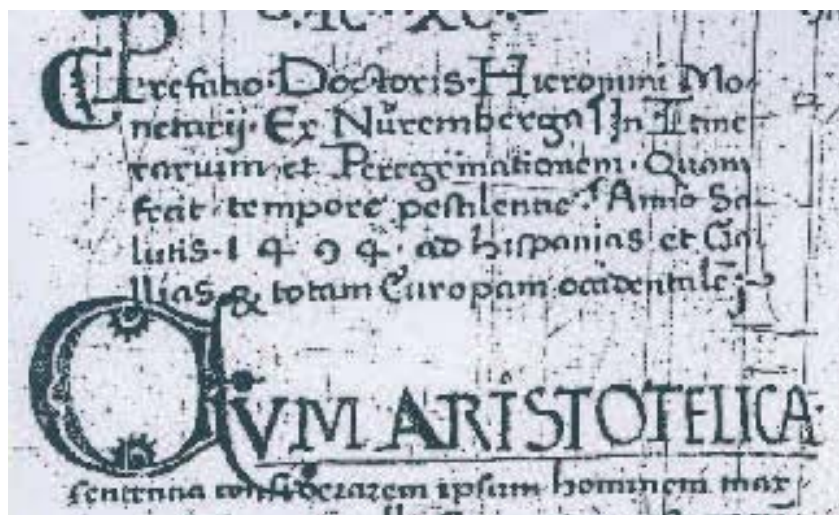 Prefatio Doctoris Hieronimi Mo-
netarij Ex Nüremberga In Itine
rarium et Peregrinationem Quam
fecit tempore pestilentiae Anno Sa-
lutis 1494 ad hispanias et Ga-
llias & totam Europam occidentalē
QVM ARISTOTELICA
sententia considerarem ipsum hominem max